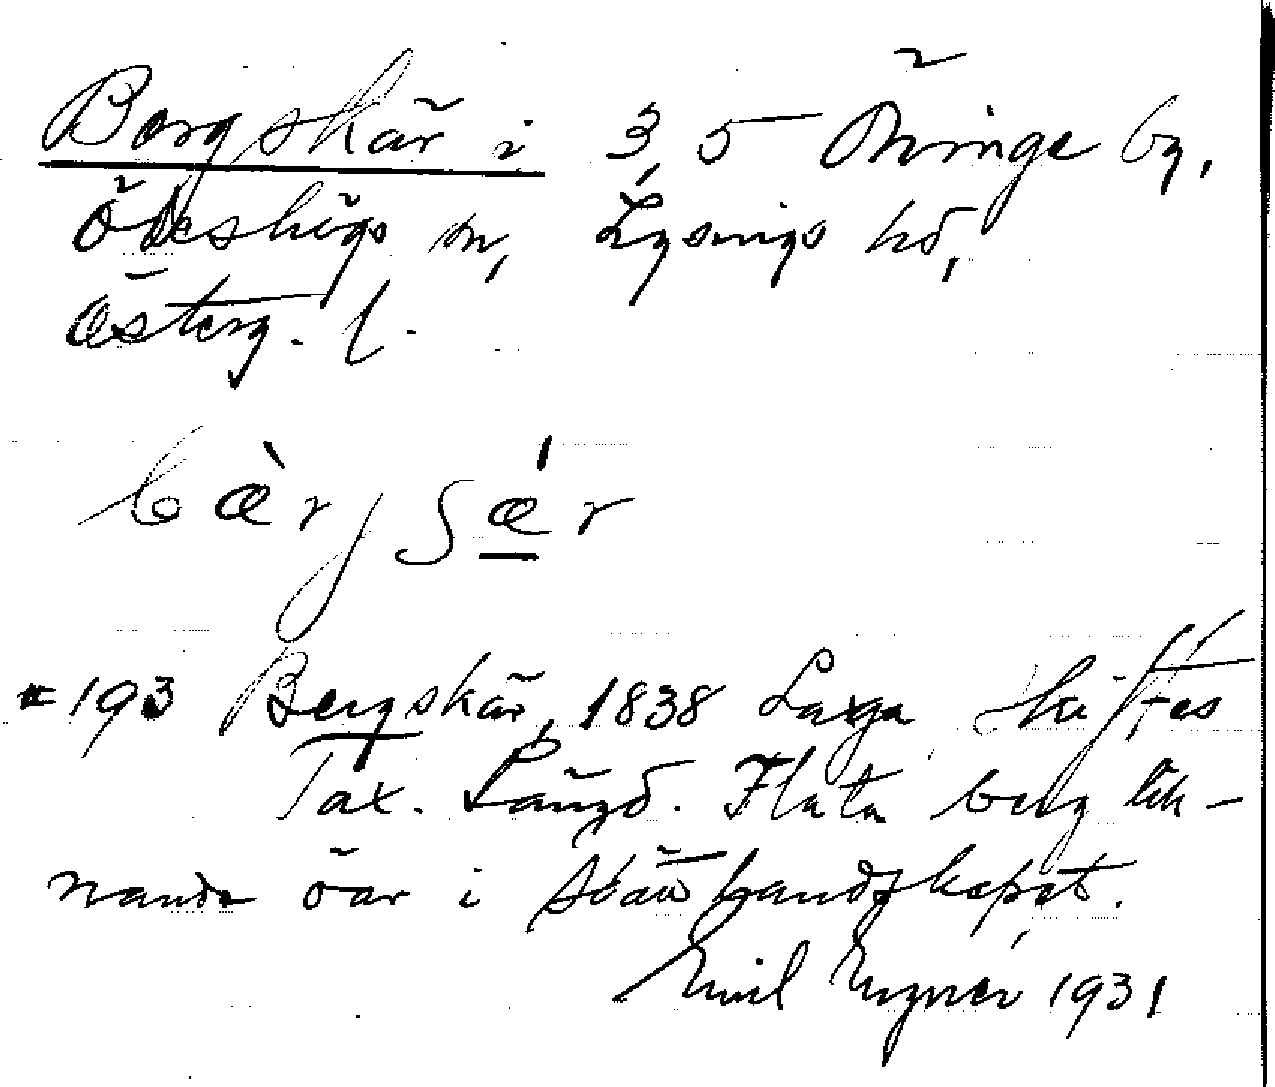 Bergskär i 3, 5 Öninge by,
Ödeshögs sn, Lysings hd,
Österg. l.
bæ̀rjʃæ̲´r
# 193 Bergskär, 1838 Laga skiftes
Tax. Längd. Flata berg lik-
nande öar i landskapet.
Emil Egnér 1931